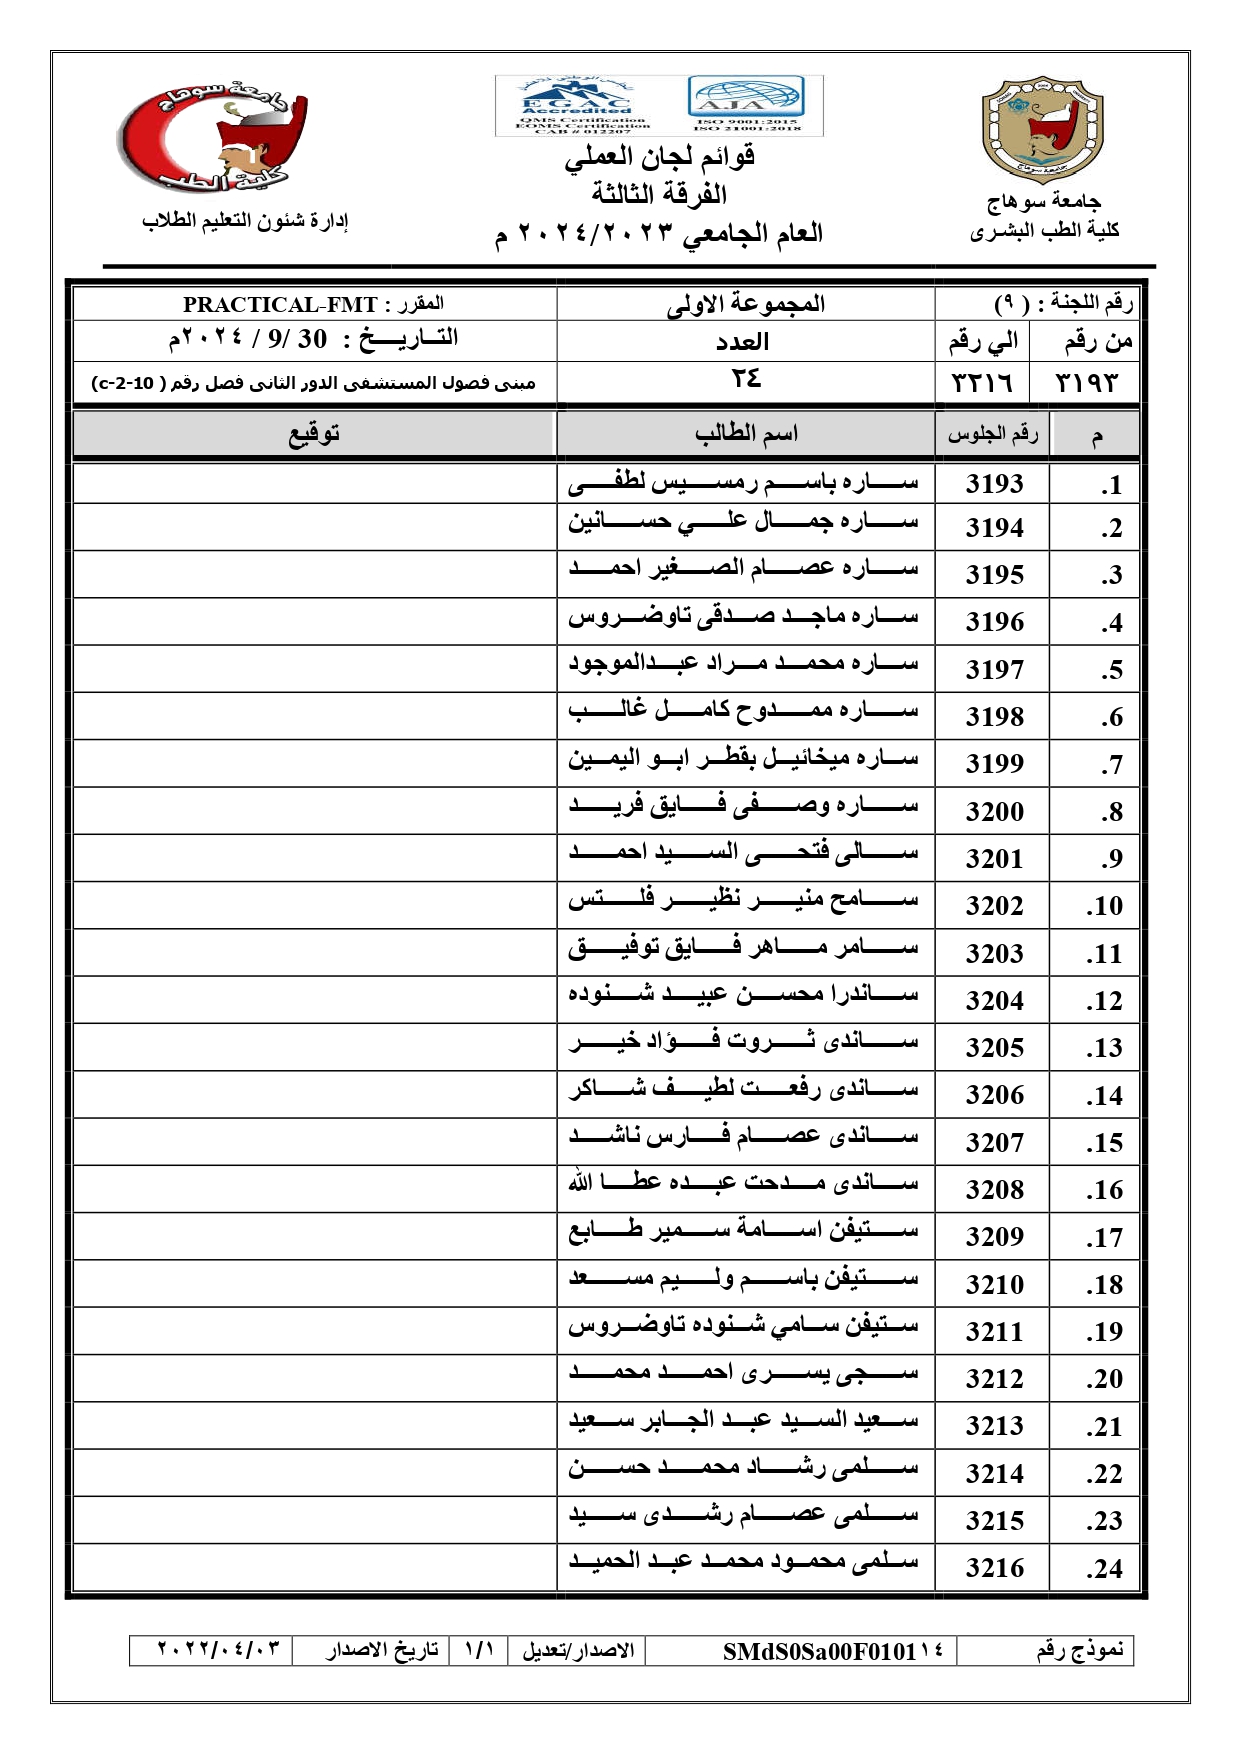 جامعة سوهاج
كلية الطب
رئيس الوطني للاعتماد
EGAC
Accredited
QMS Certification
EOMS Certification
CAB # 012207
AJA
ISO 9001:2015
ISO 21001:2018
جامعة سوهاج
جامعة سوهاج
كلية الطب البشرى
قوائم لجان العملي
الفرقة الثالثة
العام الجامعي ٢٠٢٤/٢٠٢٣ م
إدارة شئون التعليم الطلاب
رقم اللجنة : ( ٩) المجموعة الاولى المقرر : PRACTICAL-FMT
من رقم الي رقم العدد التـــاريــــخ : 30 /9 / ٢٠٢٤م
٣١٩٣ ٣٢١٦ ٢٤ مبنى فصول المستشفى الدور الثانى فصل رقم ( c-2-10)
م رقم الجلوس اسم الطالب توقيع
1. 3193 ساره باسم رمسيس لطفى
2. 3194 ساره جمال علي حسانين
3. 3195 ساره عصام الصغير احمد
4. 3196 ساره ماجد صدقى تاوضروس
5. 3197 ساره محمد مراد عبدالموجود
6. 3198 ساره ممدوح كامل غالب
7. 3199 ساره ميخائيل بقطر ابو اليمين
8. 3200 ساره وصفى فايق فريد
9. 3201 سالى فتحى السيد احمد
10. 3202 سامح منير نظير فلتس
11. 3203 سامر ماهر فايق توفيق
12. 3204 ساندرا محسن عبيد شنوده
13. 3205 ساندى ثروت فؤاد خير
14. 3206 ساندى رفعت لطيف شاكر
15. 3207 ساندى عصام فارس ناشد
16. 3208 ساندى مدحت عبده عطا الله
17. 3209 ستيفن اسامة سمير طابع
18. 3210 ستيفن باسم وليم مسعد
19. 3211 ستيفن سامي شنوده تاوضروس
20. 3212 سجى يسرى احمد محمد
21. 3213 سعيد السيد عبد الجابر سعيد
22. 3214 سلمى رشاد محمد حسن
23. 3215 سلمى عصام رشدى سيد
24. 3216 سلمى محمود محمد عبد الحميد
نموذج رقم SMdS0Sa00F0101١٤ الاصدار/تعديل ١/١ تاريخ الاصدار ٢٠٢٢/٠٤/٠٣